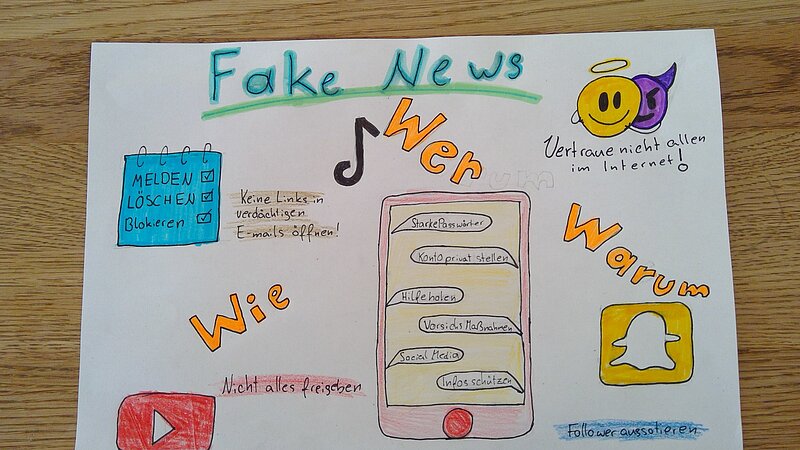 Fake News
Wer
Vertraue nicht allen
im Internet!
MELDEN
LÖSCHEN
Blokieren
Keine Links in
verdächtigen
E-mails öffnen!
um
Starke Passwörter
Konto privat stellen
Hilfe holen
Vorsichs Maßnahmen
Social Media
Infos schützen
Warum
Wie
Nicht alles freigeben
Follower aussotieren